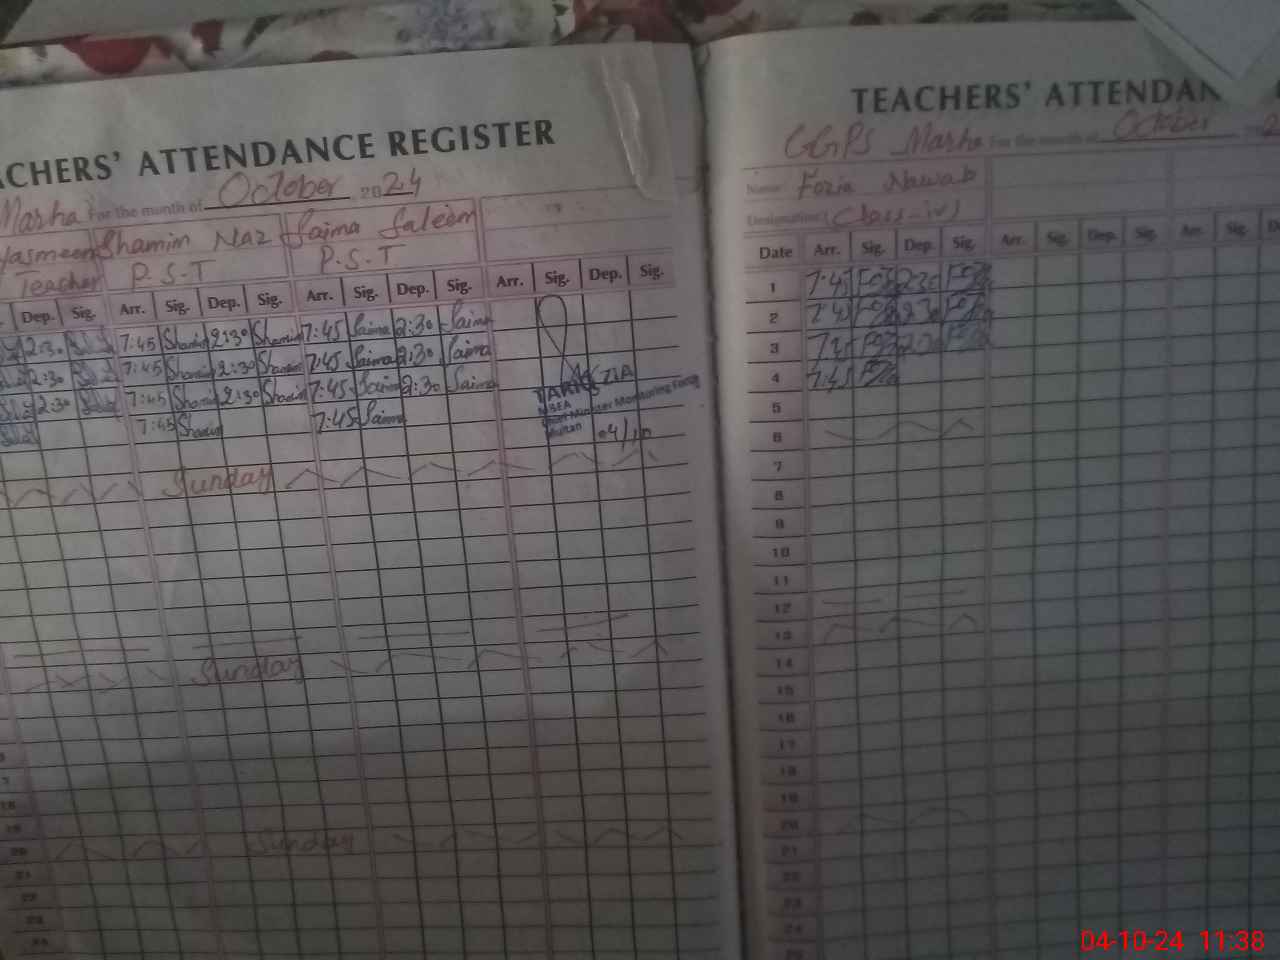 CHERS' ATTENDANCE REGISTER
Marha For the month of October 2024
Yasmeen Shamim Naz Saima Saleem
Teacher P.S.T P.S.T
Dep. Sig. Arr. Sig. Dep. Sig. Arr. Sig. Dep. Sig. Arr. Sig. Dep. Sig.
2:30 7:45 Shamim 2:30 Shamim 7:45 Saima 2:30 Saima
2:30 7:45 Shamim 2:30 Shamim 7:45 Saima 2:30 Saima
2:30 7:45 Shamim 2:30 Shamim 7:45 Saima 2:30 Saima
7:45 Shamim 7:45 Saima
TARIQ ZIA
MEA
Chief Minister Monitoring Force
Multan
04/10
Sunday
Sunday
Sunday
18
19
20
21
22
23
24
TEACHERS' ATTENDAN
GGPS Marha For the month of October 202
Name: Fozia Nawab
Designation: (Class-iv)
Date Arr. Sig. Dep. Sig. Arr. Sig. Dep. Sig. Arr. Sig. D
1 7:45 2:30
2 7:45 2:30
3 7:45 2:30
4 7:45
5
6
7
8
9
10
11
12
13
14
15
16
17
18
19
20
21
22
23
24
25
04-10-24 11:38